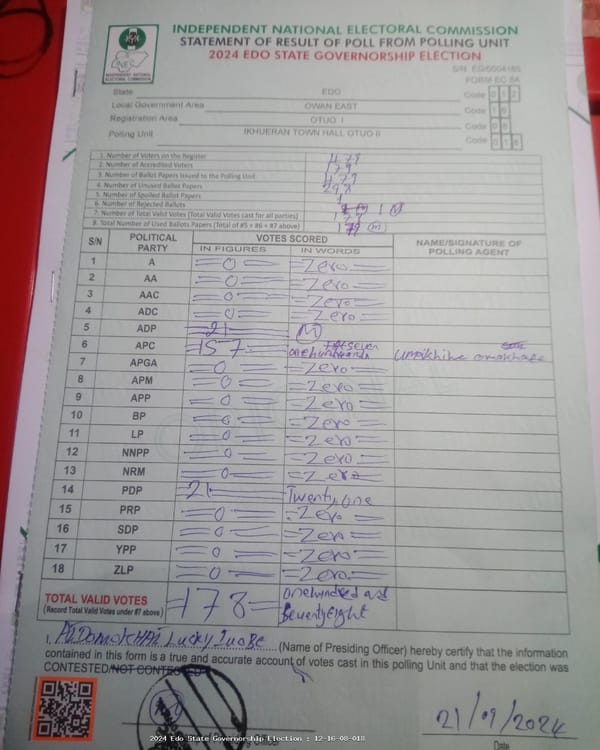 INDEPENDENT NATIONAL ELECTORAL COMMISSION
STATEMENT OF RESULT OF POLL FROM POLLING UNIT
2024 EDO STATE GOVERNORSHIP ELECTION
INEC
INDEPENDENT NATIONAL ELECTORAL COMMISSION
FORM EC 8A
State EDO Code 0 1 2
Local Government Area OWAN EAST Code 1 6
Registration Area OTUO I Code 0 8
Polling Unit IKHUERAN TOWN HALL OTUO II Code 0 1 8
1. Number of Voters on the Register 479
2. Number of Accredited Voters 179
3. Number of Ballot Papers Issued to the Polling Unit 479
4. Number of Unused Ballot Papers
5. Number of Spoiled Ballot Papers
6. Number of Rejected Ballots 1
7. Number of Total Valid Votes (Total Valid Votes cast for all parties)
8. Total Number of Used Ballots Papers (Total of #5 + #6 + #7 above) 179
S/N POLITICAL PARTY VOTES SCORED NAME/SIGNATURE OF POLLING AGENT
IN FIGURES IN WORDS
1 A 0 Zero
2 AA 0 Zero
3 AAC 0 Zero
4 ADC 0 Zero
5 ADP 21 M
6 APC 157
7 APGA 0 Zero
8 APM 0 Zero
9 APP 0 Zero
10 BP 0 Zero
11 LP 0 Zero
12 NNPP 0 Zero
13 NRM 0 Zero
14 PDP 21 Twenty one
15 PRP 0 Zero
16 SDP 0 Zero
17 YPP 0 Zero
18 ZLP 0 Zero
TOTAL VALID VOTES 178 One hundred and
(Record Total Valid Votes under #7 above) Seventy eight
I, Lucky (Name of Presiding Officer) hereby certify that the information
contained in this form is a true and accurate account of votes cast in this polling Unit and that the election was
CONTESTED/NOT CONTESTED
21/09/2024
2024 Edo State Governorship Election : 12-16-08-018
Date